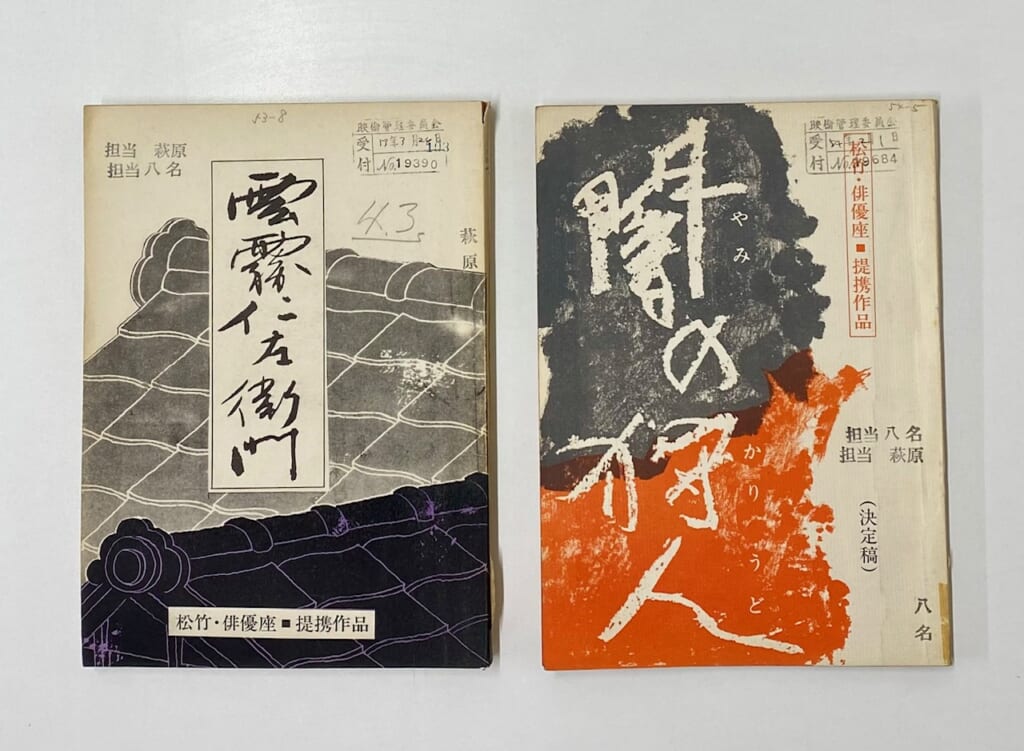 53-8
担当 萩原
担当 八名
映倫管理委員会
受付
No.19390
4.3
萩原
雲霧仁左衛門
松竹・俳優座■提携作品
54-5
映倫管理委員会
受付
松竹・俳優座■提携作品
闇の狩人
やみ
かりうど
担当 八名
担当 萩原
(決定稿)
八名